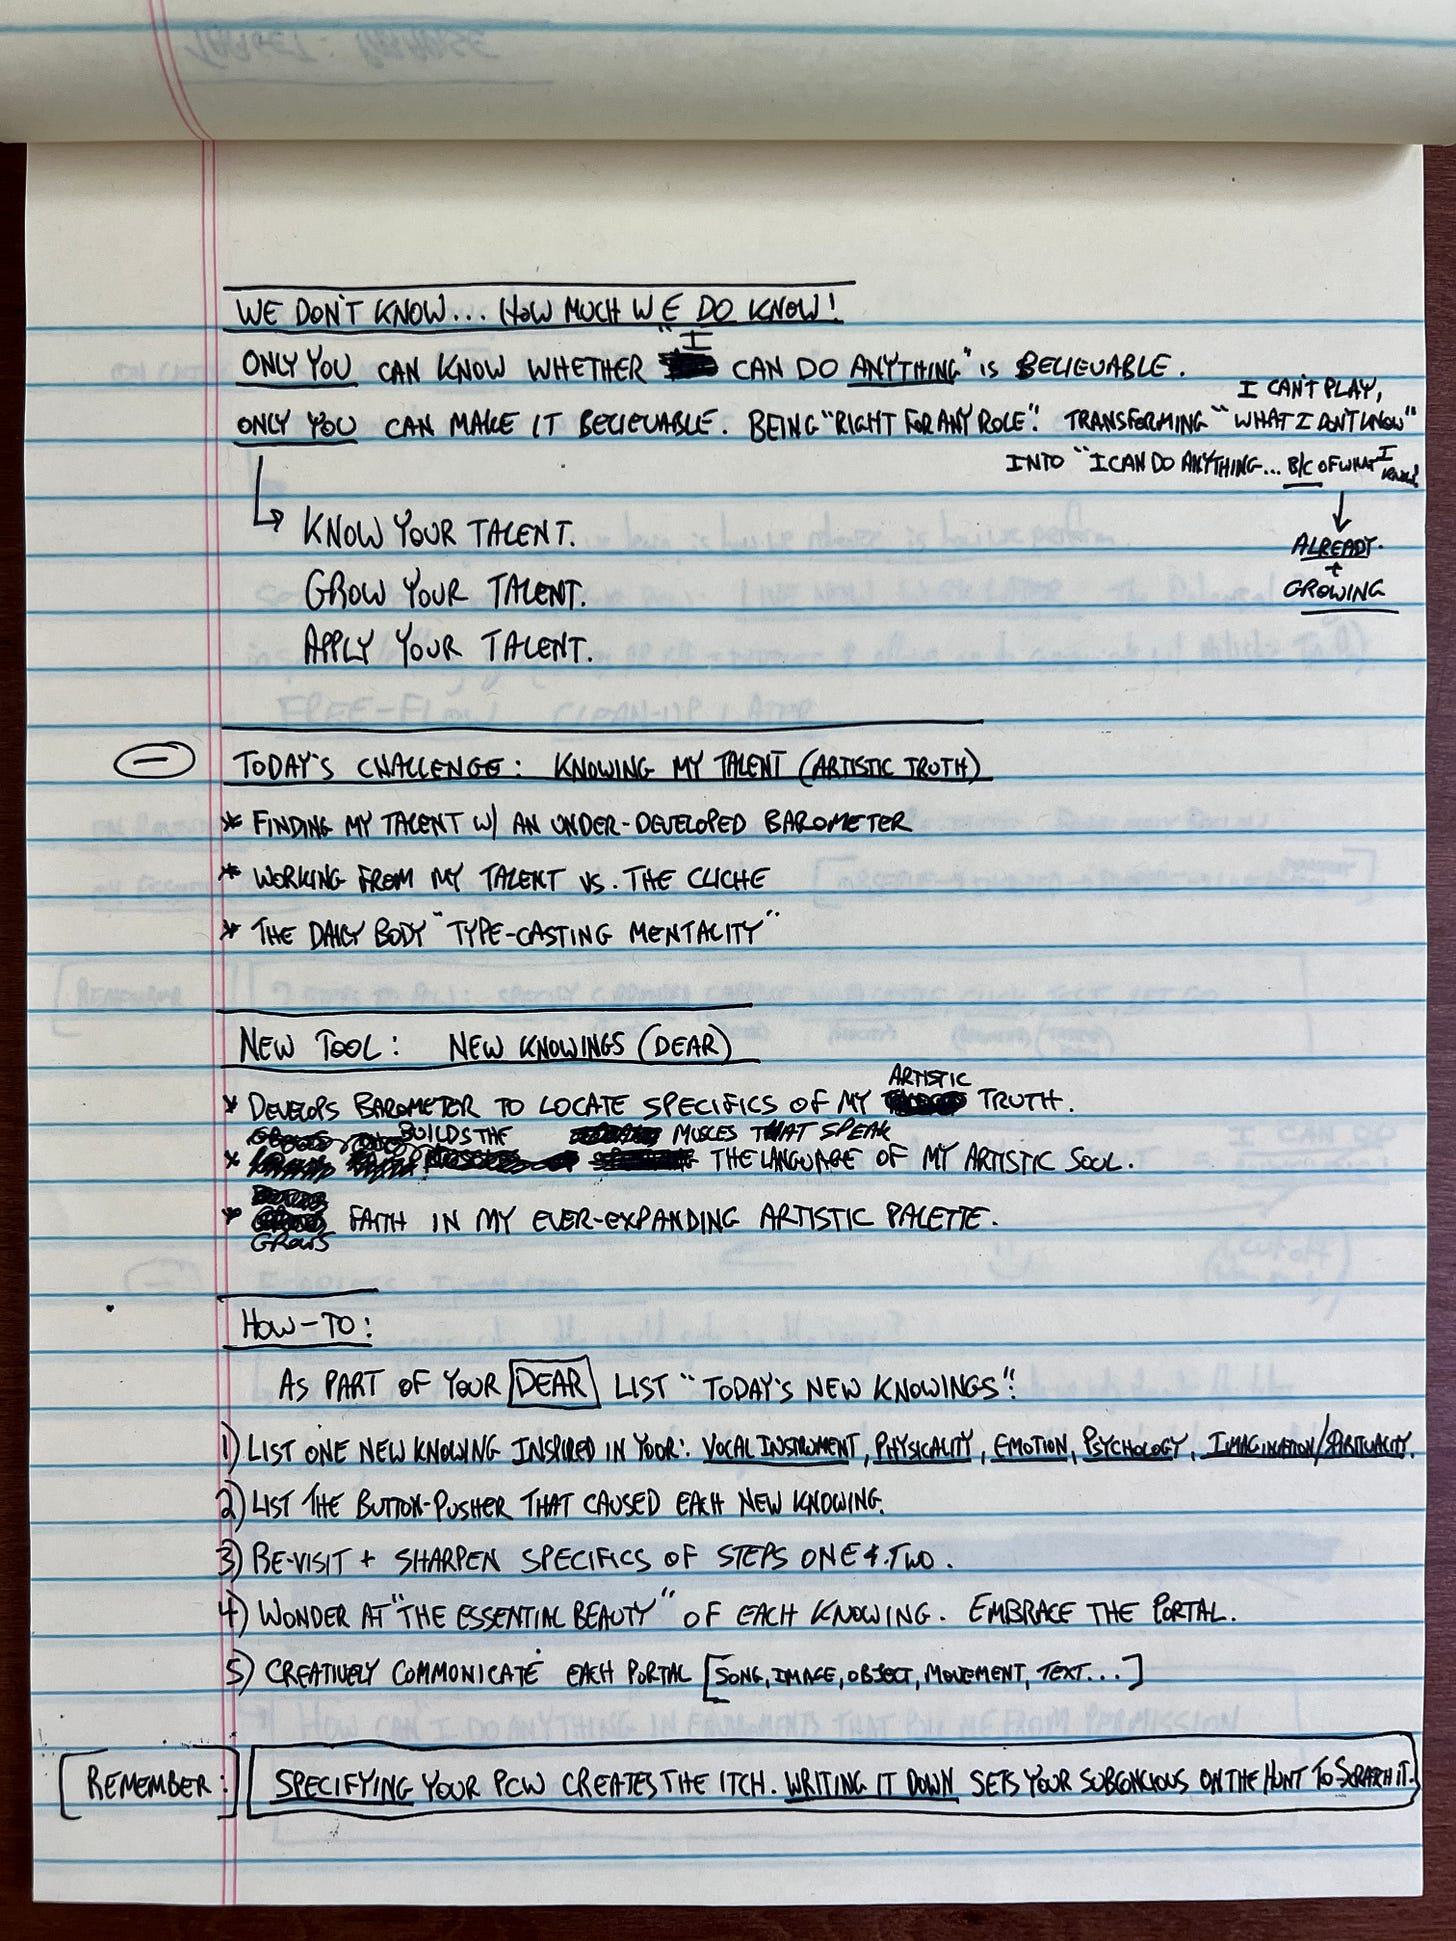 WE DON'T KNOW... HOW MUCH WE DO KNOW!
ONLY YOU CAN KNOW WHETHER "I CAN DO ANYTHING" IS BELIEVABLE.
ONLY YOU CAN MAKE IT BELIEVABLE. BEING "RIGHT FOR ANY ROLE". TRANSFORMING "I CAN'T PLAY, WHAT I DON'T KNOW"
INTO "I CAN DO ANYTHING... B/C OF WHAT I KNOW!
ALREADY.
+
GROWING
KNOW YOUR TALENT.
GROW YOUR TALENT.
APPLY YOUR TALENT.
– TODAY'S CHALLENGE: KNOWING MY TALENT (ARTISTIC TRUTH)
* FINDING MY TALENT W/ AN UNDER-DEVELOPED BAROMETER
* WORKING FROM MY TALENT VS. THE CLICHE
* THE DAILY BODY "TYPE-CASTING MENTALITY"
NEW TOOL: NEW KNOWINGS (DEAR)
* DEVELOPS BAROMETER TO LOCATE SPECIFICS OF MY ARTISTIC TRUTH.
* BUILDS THE MUSCLES THAT SPEAK THE LANGUAGE OF MY ARTISTIC SOUL.
* GROWS FAITH IN MY EVER-EXPANDING ARTISTIC PALETTE.
HOW-TO:
AS PART OF YOUR DEAR LIST "TODAY'S NEW KNOWINGS":
1) LIST ONE NEW KNOWING INSPIRED IN YOUR: VOCAL INSTRUMENT, PHYSICALITY, EMOTION, PSYCHOLOGY, IMAGINATION/SPIRITUALITY.
2) LIST THE BUTTON-PUSHER THAT CAUSED EACH NEW KNOWING.
3) RE-VISIT + SHARPEN SPECIFICS OF STEPS ONE & TWO.
4) WONDER AT "THE ESSENTIAL BEAUTY" OF EACH KNOWING. EMBRACE THE PORTAL.
5) CREATIVELY COMMUNICATE EACH PORTAL [SONG, IMAGE, OBJECT, MOVEMENT, TEXT...]
[REMEMBER: SPECIFYING YOUR PCW CREATES THE ITCH. WRITING IT DOWN SETS YOUR SUBCONCIOUS ON THE HUNT TO SCRATCH IT.]